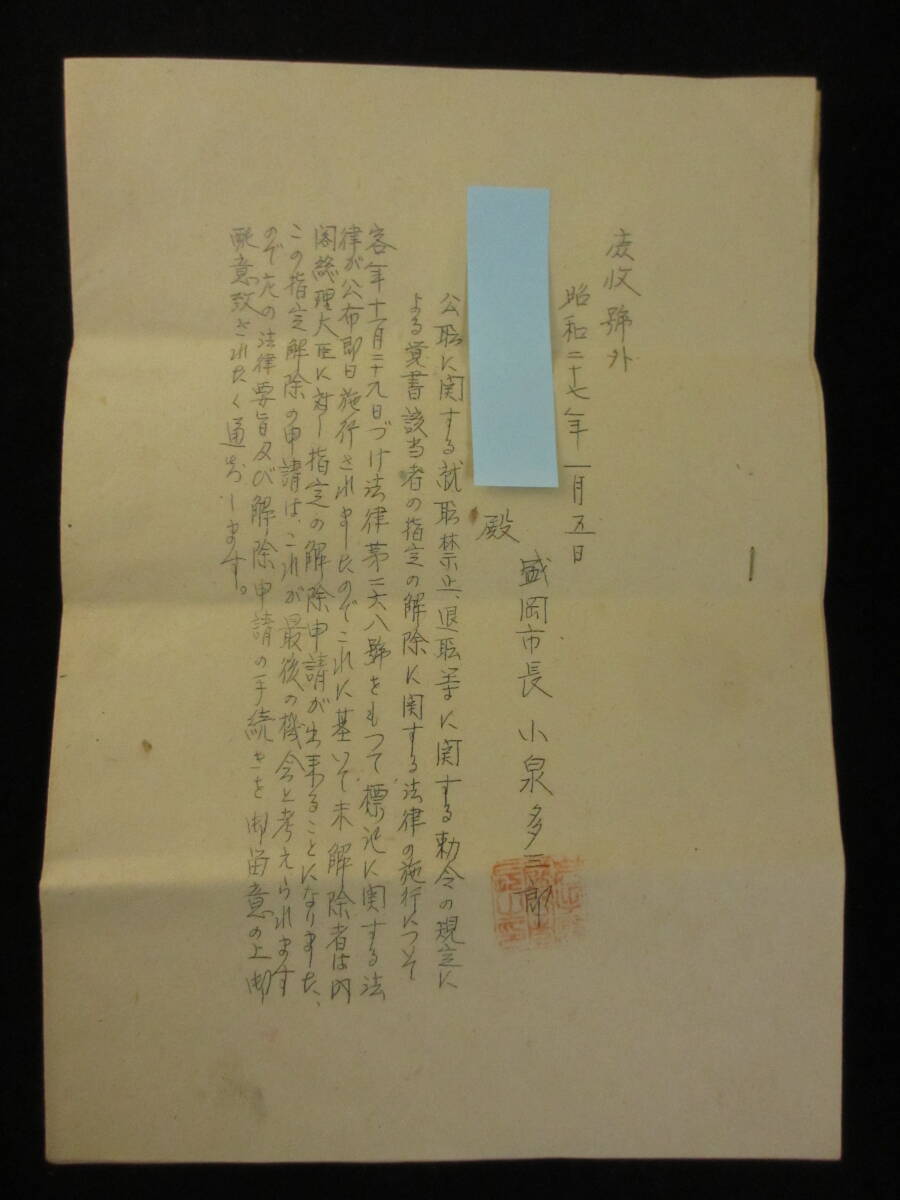 庶収號外
昭和二十七年一月五日
盛岡市長 小泉多三郎
殿
公职に関する就职禁止、退职等に関する勅令の規定に
よる覚書該当者の指定の解除に関する法律の施行について
客年十一月二十九日づけ法律第二六八號をもつて標記に関する法
律が公布即日施行されましたのでこれに基いて未解除者は内
閣総理大臣に対し指定の解除申請が出来ることになりました、
この指定解除の申請は、これが最後の機会と考えられます
ので左の法律要旨及び解除申請の手続きを御留意の上御
配意致されたく通知します。